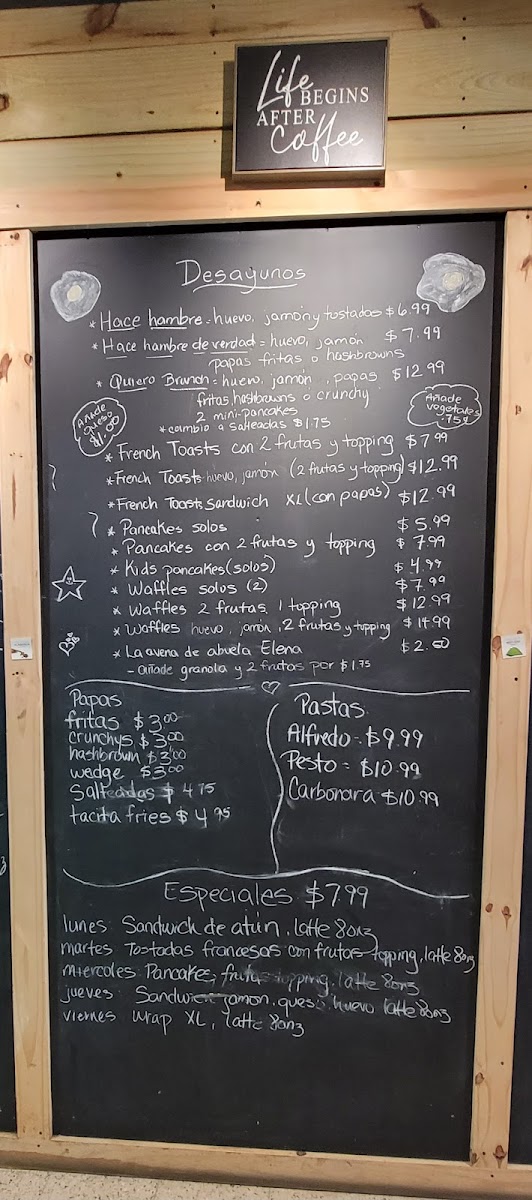 Life
BEGINS
AFTER
Coffee
Desayunos
* Hace hambre = huevo, jamón y tostadas $6.99
* Hace hambre de verdad = huevo, jamón $7.99
papas fritas o hashbrowns
* Quiero Brunch = huevo, jamón, papas $12.99
fritas, hashbrowns o crunchy
2 mini-pancakes
* cambio a salteadas $1.75
Añade
queso
$1.00
Añade
vegetales
.75¢
* French Toasts con 2 frutas y topping $7.99
* French Toasts huevo, jamon (2 frutas y topping) $12.99
* French Toasts Sandwich XL (con papas) $12.99
* Pancakes solos $5.99
* Pancakes con 2 frutas y topping $7.99
* Kids pancakes (solos) $4.99
* Waffles solos (2) $7.99
* Waffles 2 frutas 1 topping $12.99
* Waffles huevo, jamón, 2 frutas y topping $14.99
* La avena de abuela Elena $2.50
- añade granola y 2 frutas por $1.75
Papas
fritas $3.00
crunchys $3.00
hashbrown $3.00
wedge $3.00
Salteadas $4.75
tacita fries $4.95
Pastas
Alfredo - $9.99
Pesto = $10.99
Carbonara $10.99
Especiales $7.99
lunes: Sandwich de atún, latte 8onz
martes Tostadas francesas con frutas topping, latte 8onz
miercoles Pancakes, frutas topping, latte 8onz
jueves Sandwich jamon, queso, huevo latte 8onz
viernes wrap XL, latte 8onz